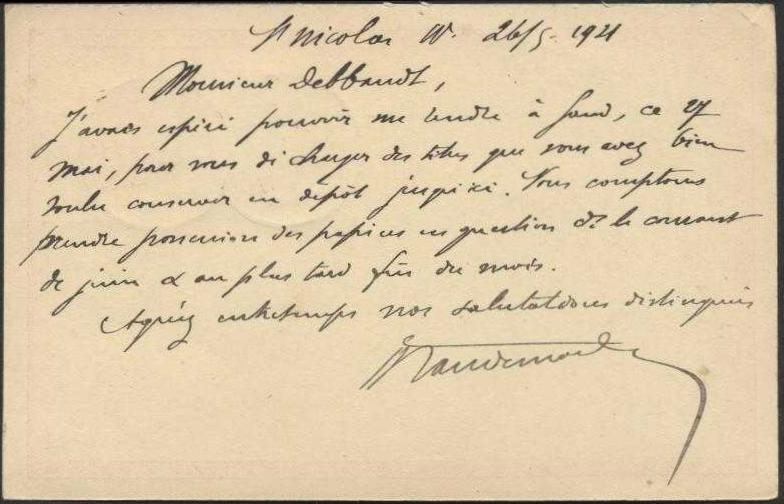 St Nicolas W. 26/5 1921
Monsieur Debbaudt,
J'avais espéré pouvoir me rendre à Gand, ce 27
mai, pour vous décharger des titres que vous avez bien
voulu conserver en dépôt jusqu'ici. Nous comptons
prendre possession des papiers en question ds le courant
de juin & au plus tard fin du mois.
Agréez entretemps nos salutations distinguées